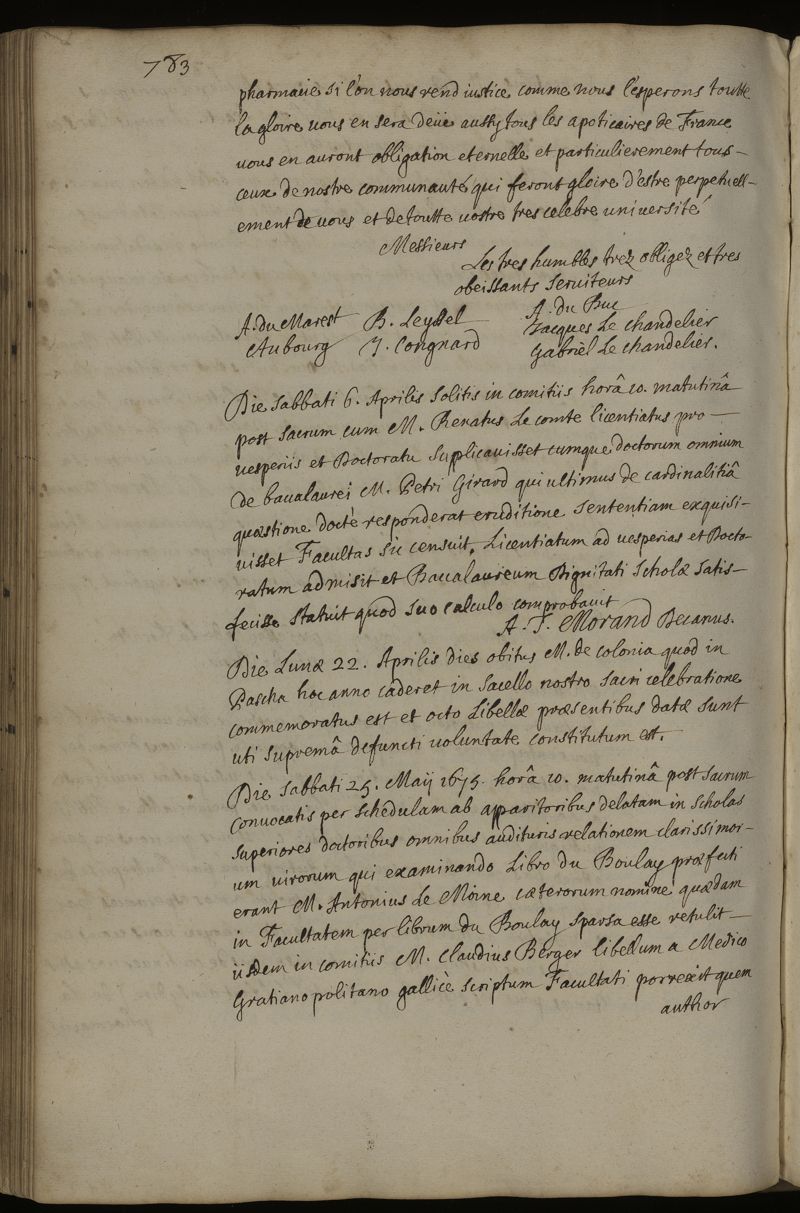 783
pharmacie si l'on nous rend iustice comme nous l'esperons toutte
la gloire vous en sera deüe aussy tous les apoticaires de France
vous en auront obligation eternelle et particulierement tous
ceux de nostre communauté qui feront gloire d'estre perpetuell-
ement de vous et de toutte vostre tres celebre université
Messieurs
Les tres humbles trez obligez et tres
obeissants seruiteurs
A. du Marest B. Leyssel A. du Buc
Aubourg J. Congnard Jacques Le chandelier
Gabriel Le chandelier.
Die Sabbati 6. Aprilis solitis in comitiis horâ 10. matutinâ
post sacrum cum M. Renatus Le comte licentiatus pro
vesperiis et Doctoratu supplicavisset cumque doctorum omnium
de baccalaurei M. Petri Girard qui ultimus de cardinalitiâ
quæstione doctè responderat eruditione sententiam exquisi-
visset Facultas sic censuit, Licentiatum ad vesperias et Docto-
ratum admisit et Baccalaureum Dignitati Scholæ satis-
fecisse statuit quod suo calculo comprobavit
A. J. Morand Decanus.
Die Lunæ 22. Aprilis dies obitus M. de colonia quod in
Pascha hoc anno caderet in sacello nostro sacri celebratione
commemoratus est et octo Libellæ præsentibus datæ sunt
uti supremâ defuncti voluntate constitutum est.
Die Sabbati 25. Maij 1675. horâ 10. matutinâ post sacrum
convocatis per schedulam ab apparitoribus delatam in scholas
superiores doctoribus omnibus audituris relationem clarissimor-
um virorum qui examinando Libro du Boulay præfecti
erant M. Antonius Le Moine cæterorum nomine quædam
in Facultatem per librum du Boulay sparsa esse retulit
iisdem in comitiis M. Claudius Berger libellum a Medico
Gratianopolitano gallicè scriptum Facultati porrexit quem
author